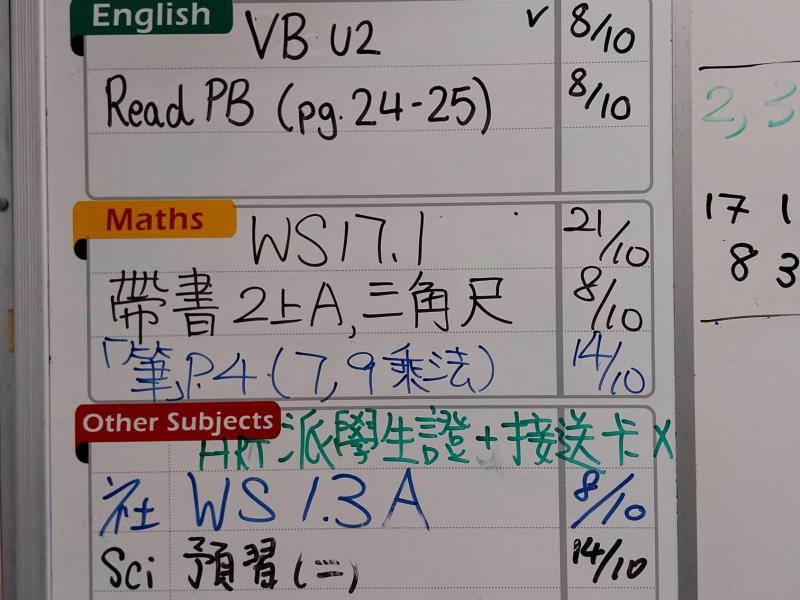 English
VB U2 ✓ 8/10
Read PB (pg.24-25) 8/10
Maths
WS17.1 21/10
帶書2上A,三角尺 8/10
「筆」P.4(7,9乘法) 14/10
Other Subjects
HRT派學生證+接送卡 X
社 WS 1.3A 8/10
Sci 預習(二) 14/10
2, 3
17 1
8 3